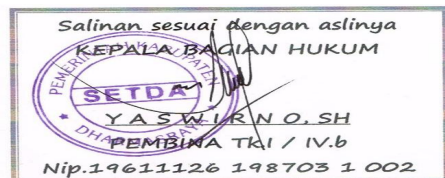 Salinan sesuai dengan aslinya
KEPALA BAGIAN HUKUM
PEMERINTAH KABUPATEN
SETDA
DHARMASRAYA
Y A S W I R N O, SH
PEMBINA TkI / IV.b
Nip.19611126 198703 1 002